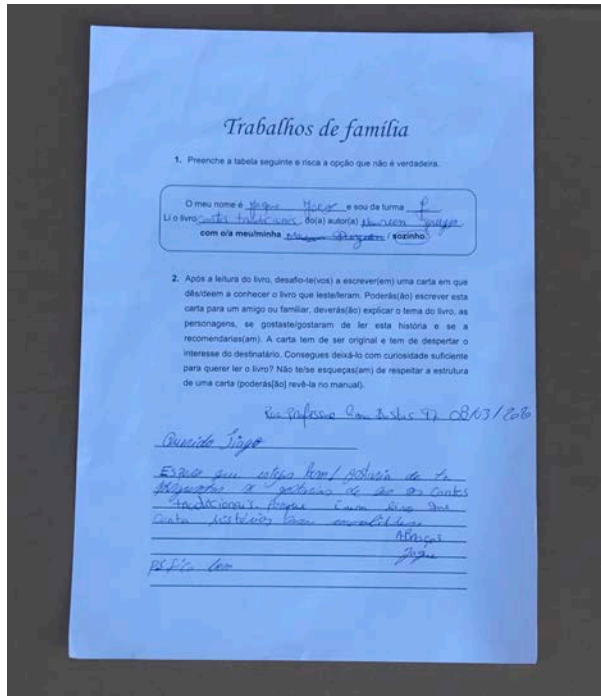 Trabalhos de família
1. Preenche a tabela seguinte e risca a opção que não é verdadeira.
O meu nome é e sou da turma
Li o livro contos tradicionais do(a) autor(a)
com o/a meu/minha / sozinho.
2. Após a leitura do livro, desafio-te(vos) a escrever(em) uma carta em que
dês/deem a conhecer o livro que leste/leram. Poderás(ão) escrever esta
carta para um amigo ou familiar, deverás(ão) explicar o tema do livro, as
personagens, se gostaste/gostaram de ler esta história e se a
recomendarias(am). A carta tem de ser original e tem de despertar o
interesse do destinatário. Consegues deixá-lo com curiosidade suficiente
para querer ler o livro? Não te/se esqueças(am) de respeitar a estrutura
de uma carta (poderás[ão] revê-la no manual).
Rua Professor 08/03/2020
Querido Tiago
Espero que estejas bem! gostaria de te
perguntar se gostarias de ler os contos
tradicionais, porque é um livro que
conta histórias com
Abraços
ps fica bem